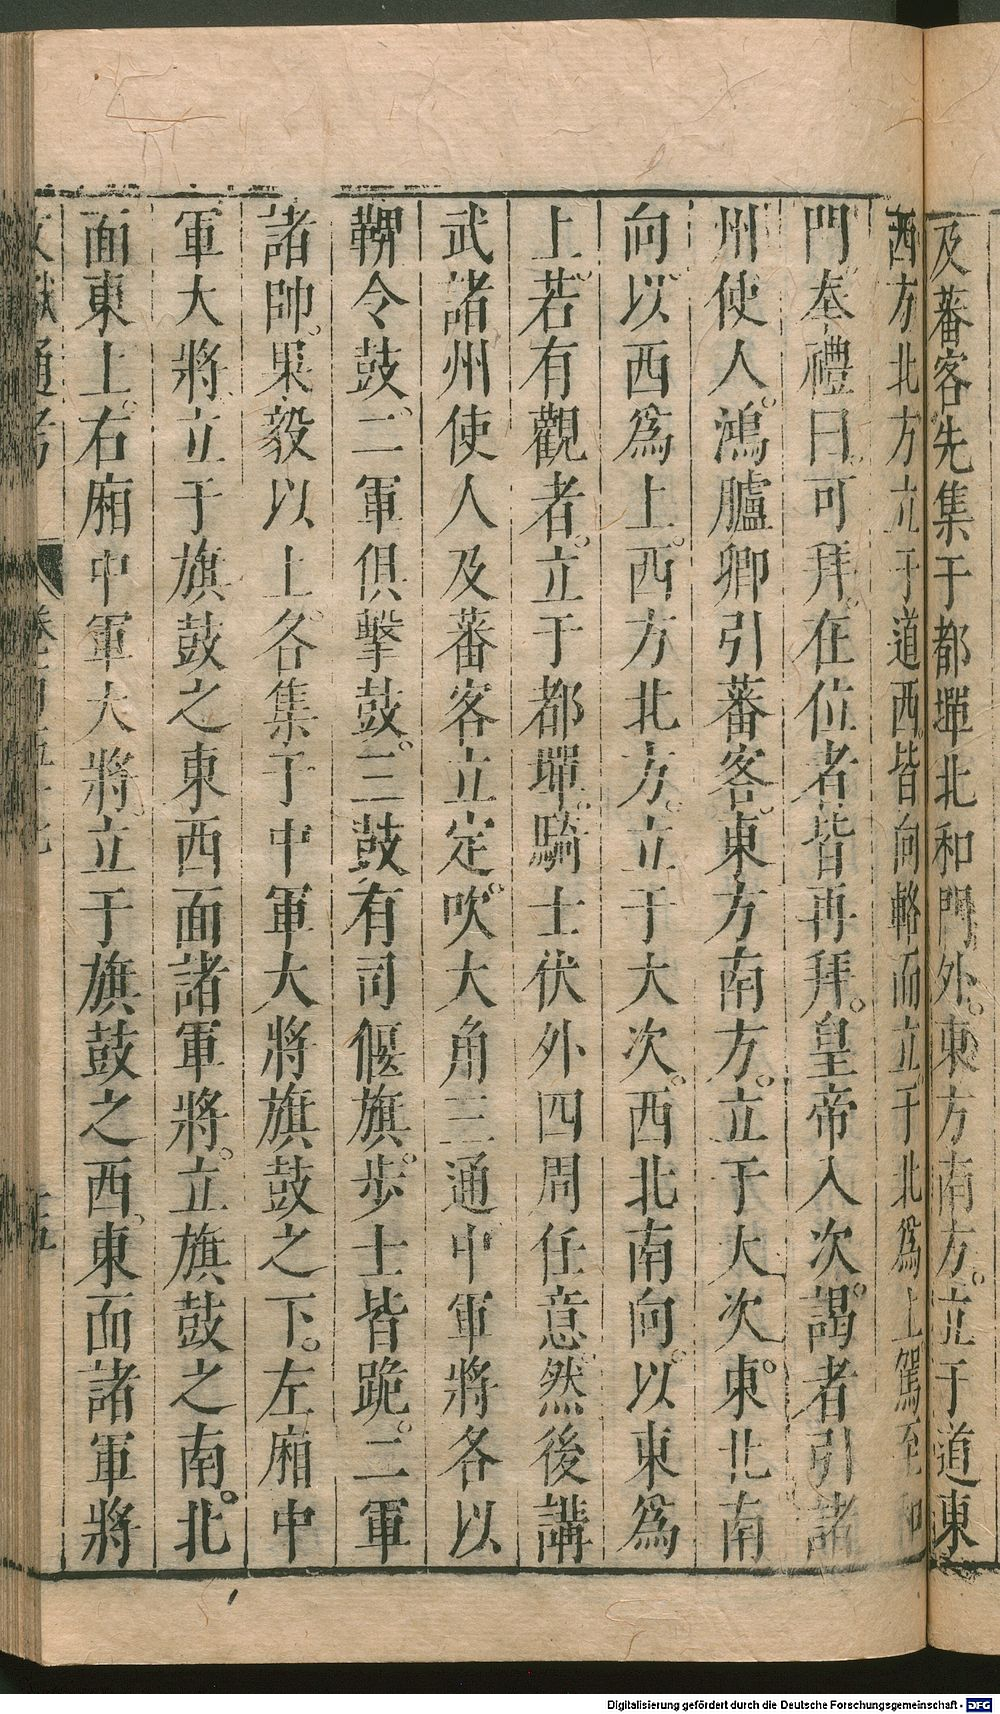 及蕃客先集于都墠北和門外東方南方立于道東
西方北方立于道西皆向輅而立于北爲上駕至和
門奉禮曰可拜在位者皆再拜皇帝入次謁者引諸
州使人鴻臚卿引蕃客東方南方立于大次東北南
向以西爲上西方北方立于大次西北南向以東爲
上若有觀者立于都墠騎士伏外四周任意然後講
武諸州使人及蕃客立定吹大角三通中軍將各以
鞞令鼓二軍俱擊鼓三鼓有司偃旗步士皆跪二軍
諸帥果毅以上各集于中軍大將旗鼓之下左廂中
軍大將立于旗鼓之東西面諸軍將立旗鼓之南北
面東上右廂中軍大將立于旗鼓之西東面諸軍將
文獻通考 卷一百五十七 十五
Digitalisierung gefördert durch die Deutsche Forschungsgemeinschaft - DFG